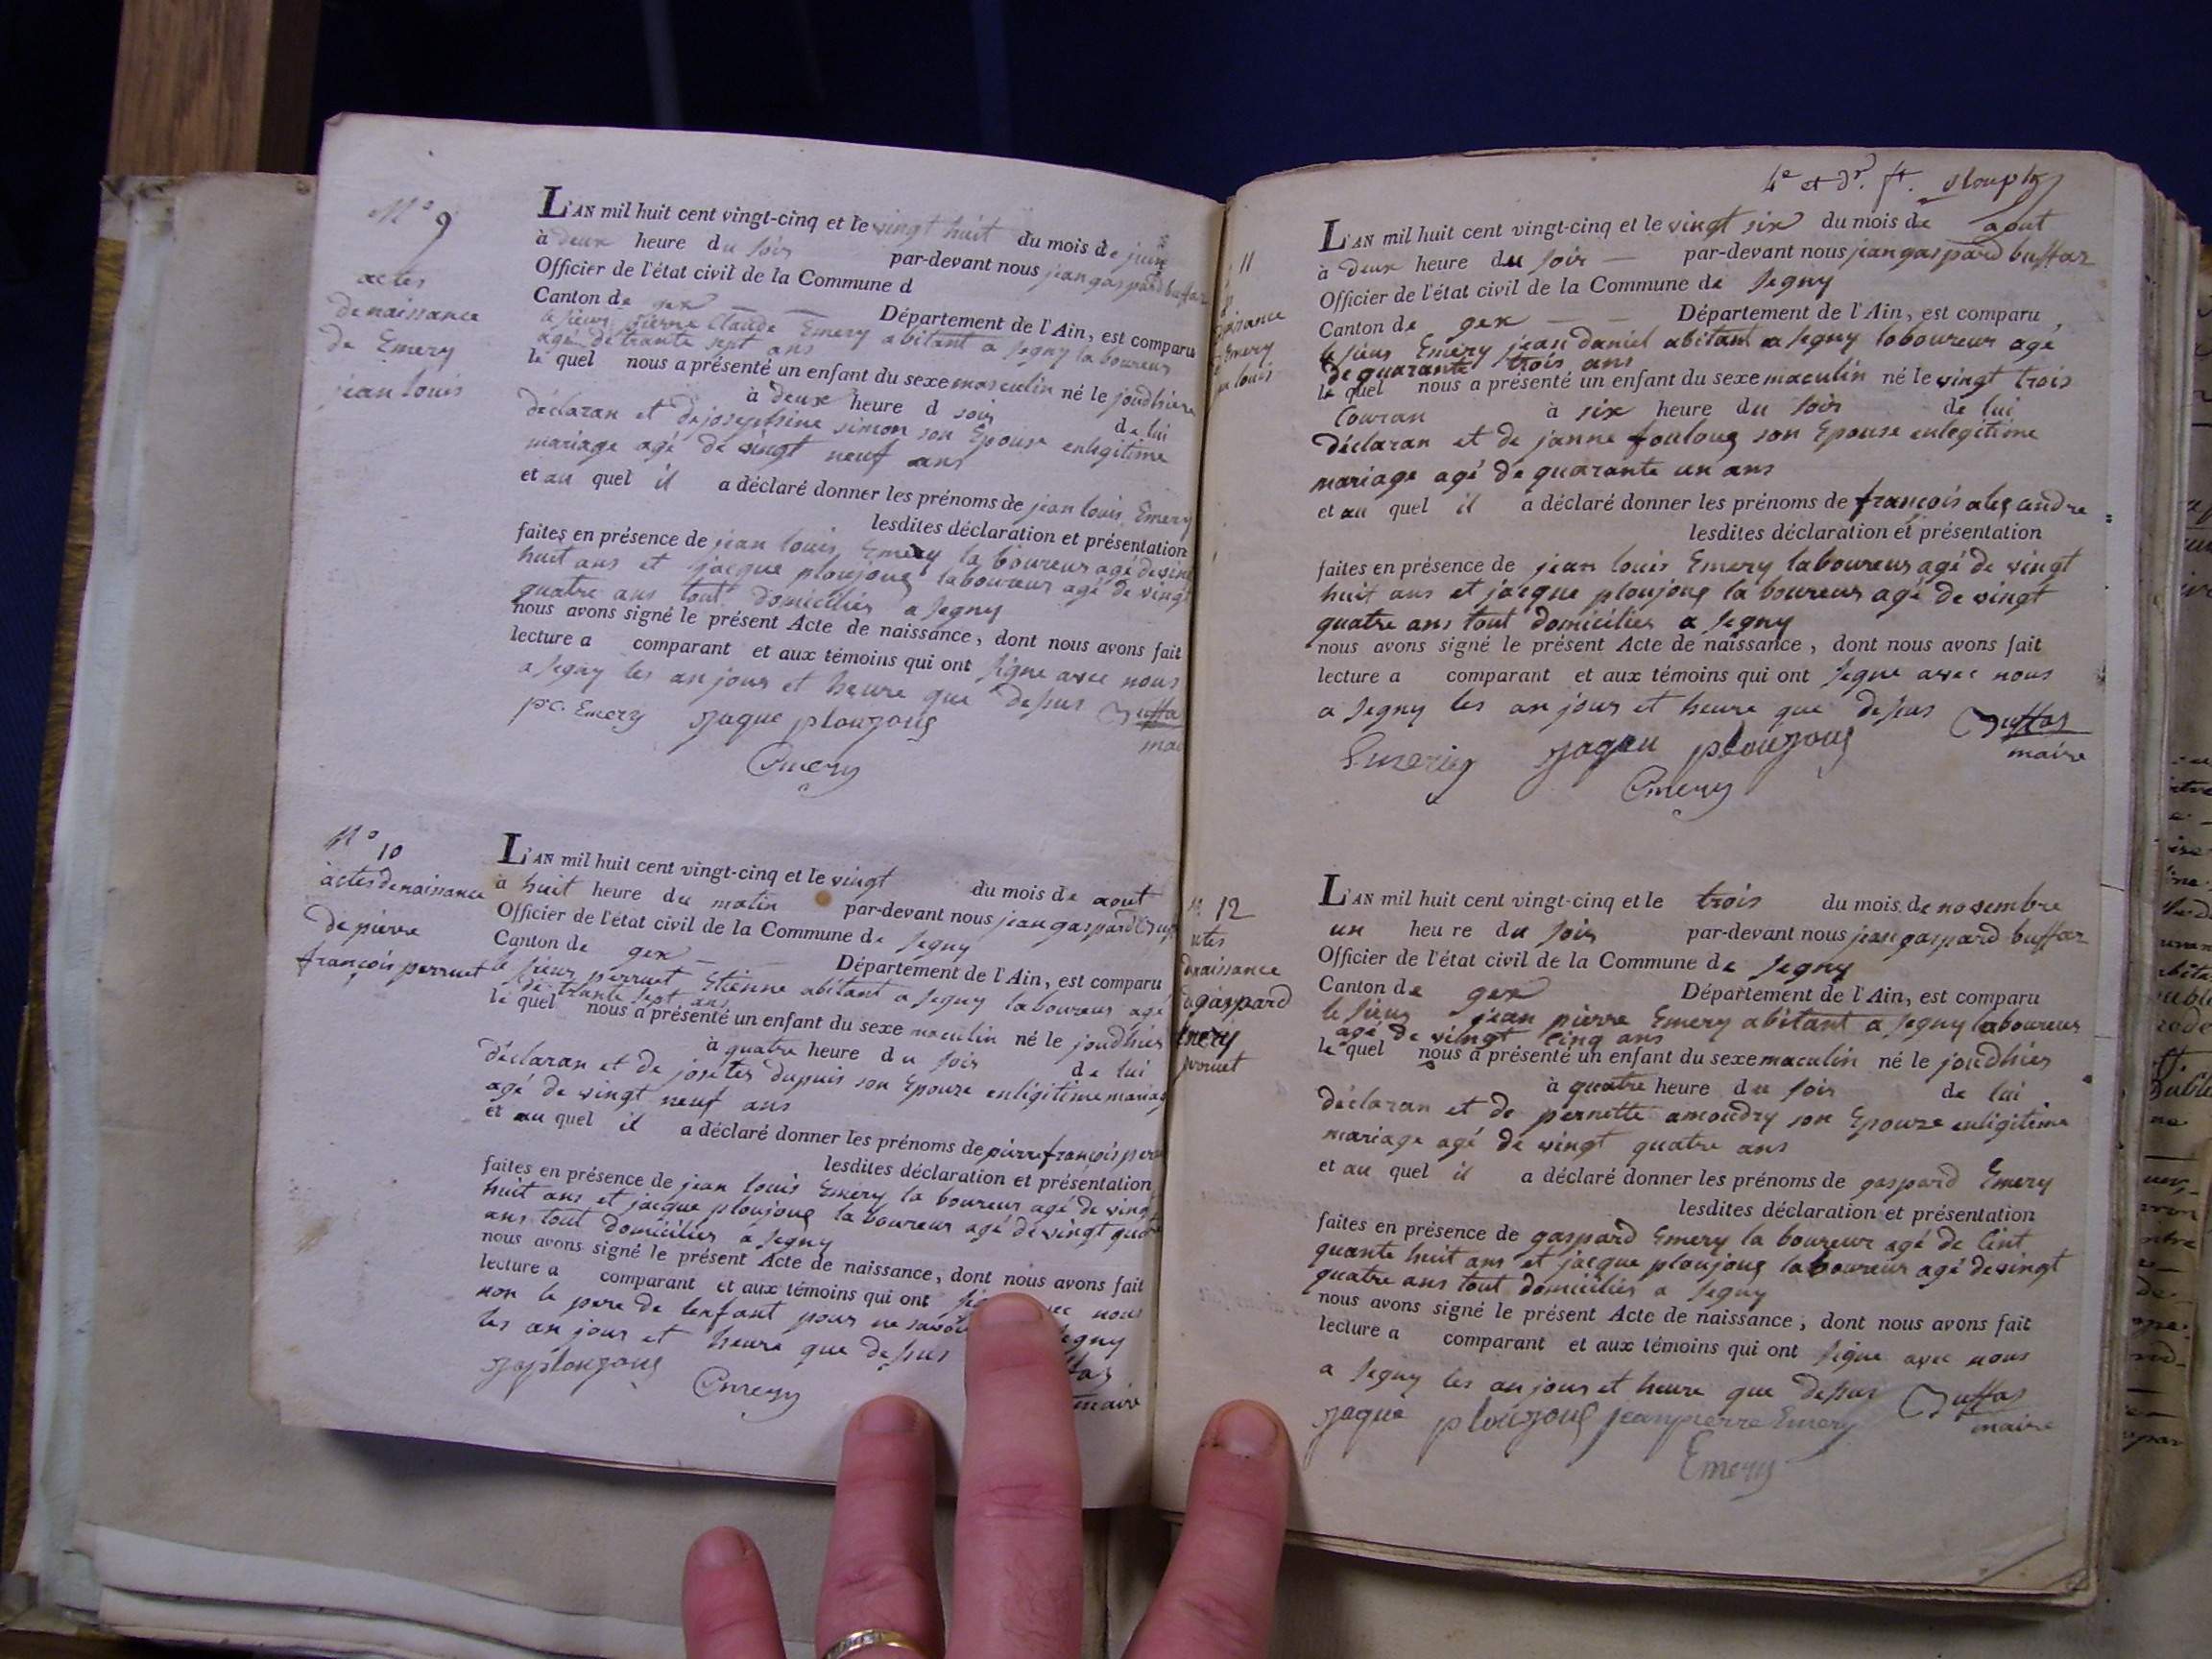 N° 9
actes
de naissance
de Emery
jean louis
L'AN mil huit cent vingt-cinq et le vingt huit du mois de juin
à deux heure du soir par-devant nous jean gaspard buffaz
Officier de l'état civil de la Commune d
Canton de gex Département de l'Ain, est comparu
le sieur pierre Claude Emery abitant a segny laboureur
agé de trante sept ans
le quel nous a présenté un enfant du sexe masculin né le joudhiere
à deux heure d soir de lui
déclaran et de josephine simon son Epouse enlegitime
mariage agé de vingt neuf ans
et au quel il a déclaré donner les prénoms de jean louis Emery
lesdites déclaration et présentation
faites en présence de jean louis Emery la boureur agé de vint
huit ans et jacque ploujoug laboureur agé de vingt
quatre ans tout domiciliés a segny
nous avons signé le présent Acte de naissance, dont nous avons fait
lecture a comparant et aux témoins qui ont signe avec nous
a segny les an jour et heure que desus Buffa
p.c. Emery Jaque plouzoug mai
Emery
N° 10
actes de naissance
de pierre
françois perruet
L'AN mil huit cent vingt-cinq et le vingt du mois de aout
à huit heure du matin par-devant nous jean gaspard Buff
Officier de l'état civil de la Commune de segny
Canton de gex Département de l'Ain, est comparu
le sieur perruet Etienne abitant a segny laboureur agé
de trante sept ans
le quel nous a présenté un enfant du sexe maculin né le joudhier
à quatre heure du soir de lui
déclaran et de josetes dupuis son Epouze enlégitime mariag
agé de vingt neuf ans
et au quel il a déclaré donner les prénoms de pierre françois perru
lesdites déclaration et présentation
faites en présence de jean louis Emery la boureur agé de vingt
huit ans et jacque ploujoug la boureur agé de vingt quatre
ans tout domiciliés a segny
nous avons signé le présent Acte de naissance, dont nous avons fait
lecture a comparant et aux témoins qui ont nous
non le pere de lenfant pour ne savoir segny
les an jour et heure que desus
Japlouzoug Emery maire
4e et dr. ft.
11
naissance
Emery
louis
L'AN mil huit cent vingt-cinq et le vingt six du mois de aout
à deux heure du soir par-devant nous jean gaspard buffaz
Officier de l'état civil de la Commune de segny
Canton de gex Département de l'Ain, est comparu
le sieur Emery jean daniel abitant a segny laboureur agé
de quarante trois ans
le quel nous a présenté un enfant du sexe maculin né le vingt trois
Couran à six heure du soir de lui
déclaran et de janne fouloug son Epouse enlegitime
mariage agé de quarante un ans
et au quel il a déclaré donner les prénoms de françois alexandre
lesdites déclaration et présentation
faites en présence de jean louis Emery laboureur agé de vingt
huit ans et jacque ploujoug la boureur agé de vingt
quatre ans tout domiciliés a segny
nous avons signé le présent Acte de naissance, dont nous avons fait
lecture a comparant et aux témoins qui ont segne avec nous
a segny les an jour et heure que desus Buffaz
Emeriy Jaque plouzoug maire
Emery
n. 12
actes
naissance
gaspard
Emery
L'AN mil huit cent vingt-cinq et le trois du mois de novembre
un heure du soir par-devant nous jean gaspard buffaz
Officier de l'état civil de la Commune de segny
Canton de gex Département de l'Ain, est comparu
le sieur jean pierre Emery abitant a segny laboureur
agé de vingt cinq ans
le quel nous a présenté un enfant du sexe maculin né le joudhier
à quatre heure du soir de lui
déclaran et de pernette amoudry son Epouze enligitime
mariage agé de vingt quatre ans
et au quel il a déclaré donner les prénoms de gaspard Emery
lesdites déclaration et présentation
faites en présence de gaspard Emery la boureur agé de cint
quante huit ans et jacque ploujoug laboureur agé de vingt
quatre ans tout domiciliés a segny
nous avons signé le présent Acte de naissance, dont nous avons fait
lecture a comparant et aux témoins qui ont signe avec nous
a segny les an jour et heure que desus Buffaz
Jaque plouzoug jeanpierre Emery maire
Emery